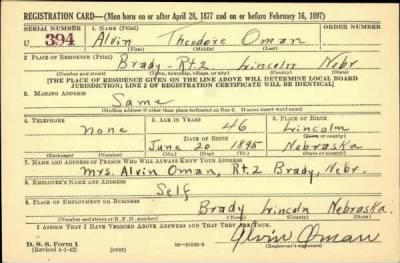 REGISTRATION CARD—(Men born on or after April 28, 1877 and on or before February 16, 1897)
SERIAL NUMBER 1. NAME (Print)
U 394 Alvin Theodore Oman
(First) (Middle) (Last)
2. PLACE OF RESIDENCE (Print)
Brady-Rt.2 Lincoln Nebr
(Number and street) (Town, township, village, or city) (County) (State)
[THE PLACE OF RESIDENCE GIVEN ON THE LINE ABOVE WILL DETERMINE LOCAL BOARD
JURISDICTION; LINE 2 OF REGISTRATION CERTIFICATE WILL BE IDENTICAL]
3. MAILING ADDRESS
Same
[Mailing address if other than place indicated on line 2. If same insert word same]
4. TELEPHONE 5. AGE IN YEARS 6. PLACE OF BIRTH
None 46 Lincoln
DATE OF BIRTH (Town or county)
June 20 1895 Nebraska
(Exchange) (Number) (Mo.) (Day) (Yr.) (State or country)
7. NAME AND ADDRESS OF PERSON WHO WILL ALWAYS KNOW YOUR ADDRESS
Mrs. Alvin Oman, Rt.2 Brady, Nebr.
8. EMPLOYER'S NAME AND ADDRESS
Self
9. PLACE OF EMPLOYMENT OR BUSINESS
Brady Lincoln Nebraska.
(Number and street or R. F. D. number) (Town) (County) (State)
I AFFIRM THAT I HAVE VERIFIED ABOVE ANSWERS AND THAT THEY ARE TRUE.
D. S. S. Form 1 Alvin Oman
(Revised 4-1-42) (over) (Registrant's signature)